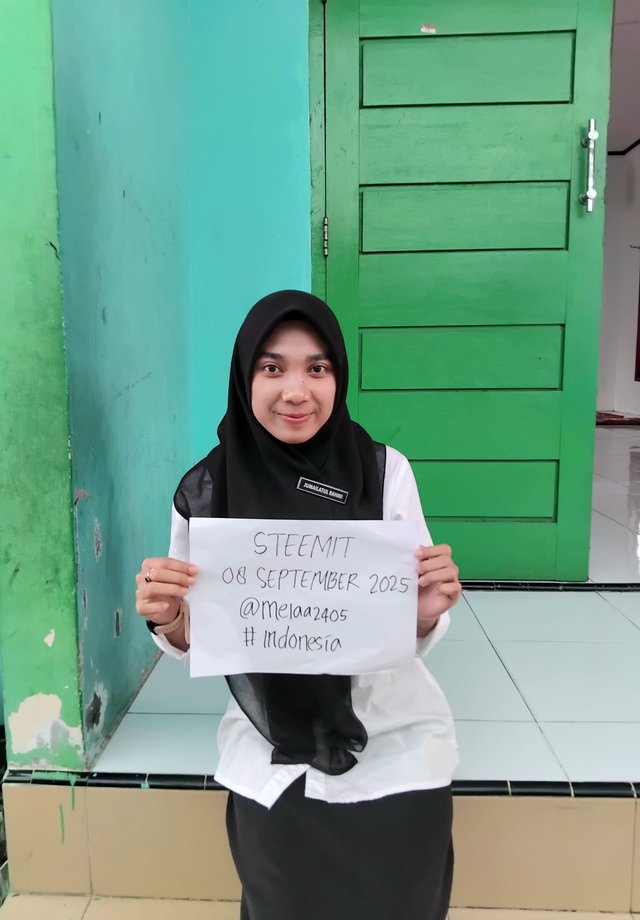 JUMAILATUL RAHMI
STEEMIT
08 SEPTEMBER 2025
@melaa2405
# Indonesia